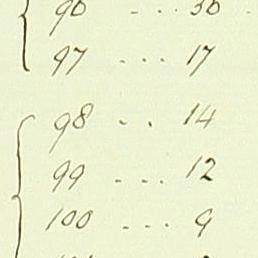 97 ... 17
98 .. 14
99 ... 12
100 ... 9